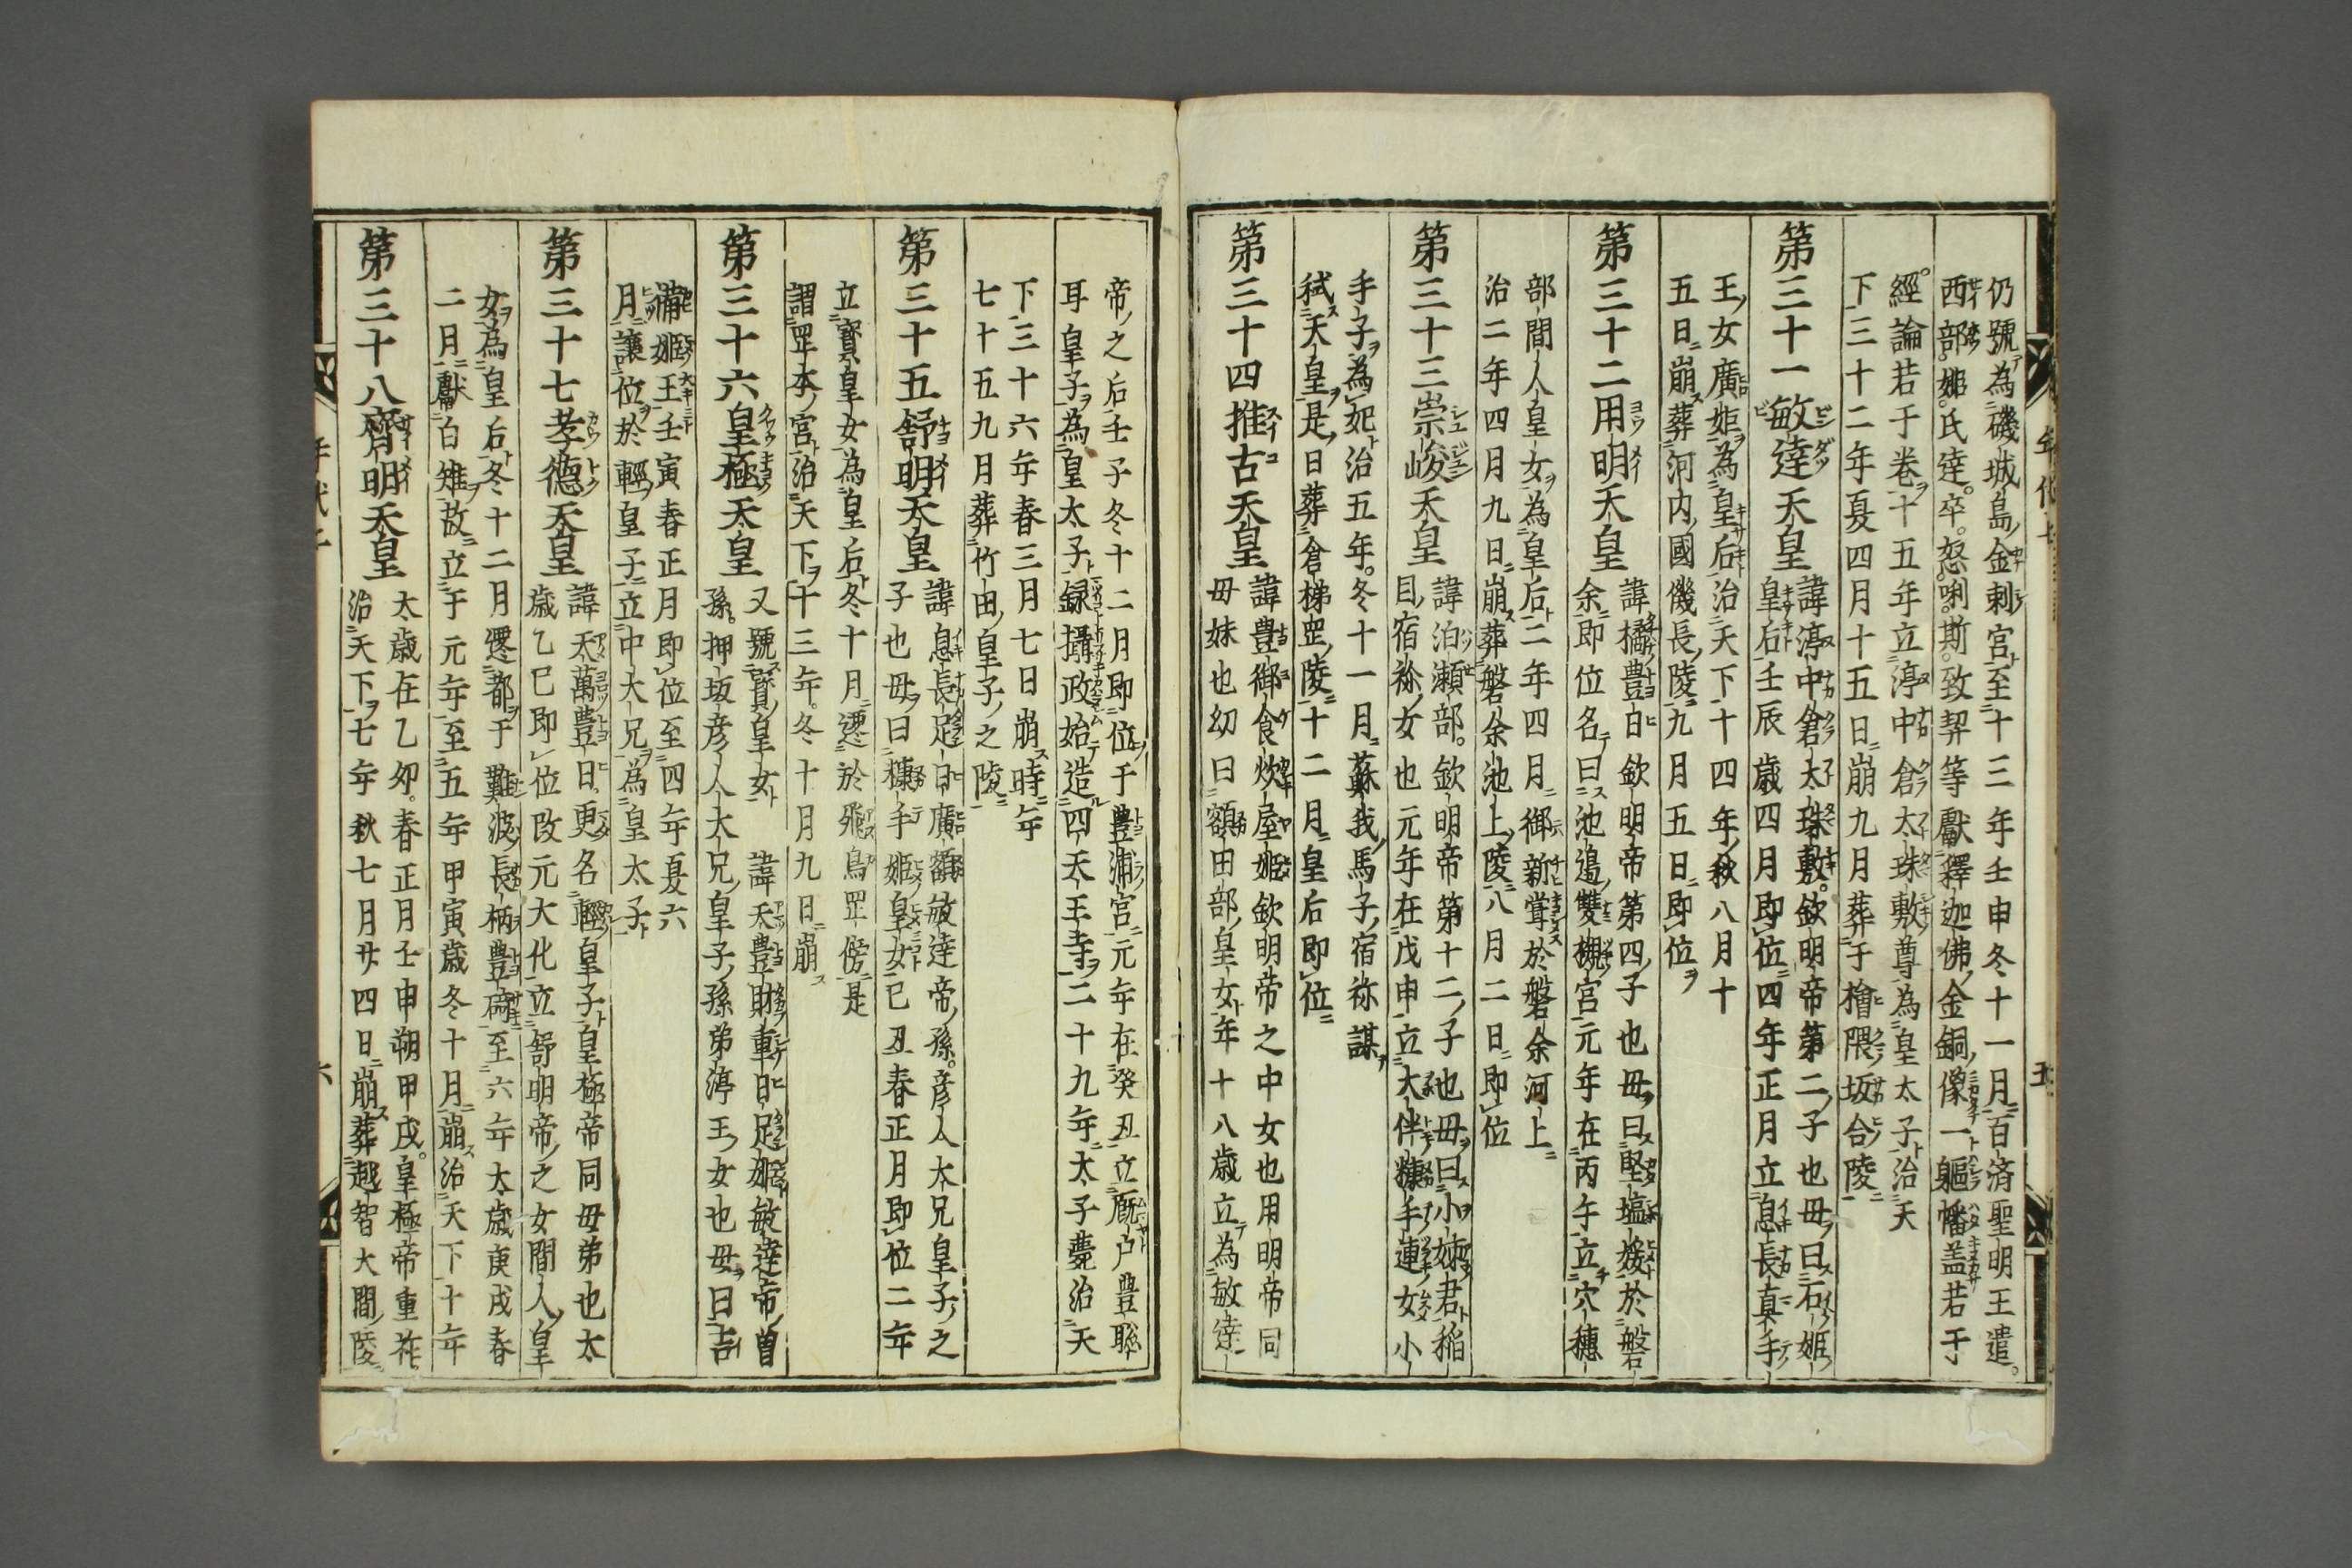 仍號為磯城島金刺宮至十三年壬申冬十一月百済聖明王遣
西部姫氏達卒怒唎斯致契等獻釋迦佛金銅像一軀幡盖若干
經論若干卷十五年立渟中倉太珠敷尊為皇太子治天
下三十二年夏四月十五日崩九月葬于檜隈坂合陵
第三十一敏達天皇
諱渟中倉太珠敷欽明帝第二子也毋曰石姫
皇后壬辰歳四月即位四年正月立息長真手
王女廣姫為皇后治天下十四年秋八月十
五日崩葬河内國磯長陵九月五日即位
第三十二用明天皇
諱橘豊日欽明帝第四子也毋曰堅塩媛於磐
余即位名曰池邉雙槻宮元年在丙午立穴穗
部間人皇女為皇后二年四月御新嘗於磐余河上
治二年四月九日崩葬磐余池上陵八月二日即位
第三十三崇峻天皇
諱泊瀬部欽明帝第十二子也毋曰小姉君稲
目宿祢女也元年在戊申立大伴糠手連女小
手子為妃治五年冬十一月蘇我馬子宿祢謀
弑天皇是日葬倉梯岡陵十二月皇后即位
第三十四推古天皇
諱豊御食炊屋姫欽明帝之中女也用明帝同
毋妹也幻曰額田部皇女年十八歳立為敏達
帝之后壬子冬十二月即位于豊浦宮元年在癸丑立厩戸豊聡
耳皇子為皇太子録攝政始造四天王寺二十九年太子薨治天
下三十六年春三月七日崩時年
七十五九月葬竹田皇子之陵
第三十五舒明天皇
諱息長足日廣額敏達帝孫彦人大兄皇子之
子也毋曰糠手姫皇女己丑春正月即位二年
立寳皇女為皇后冬十月遷於飛鳥岡傍是
謂岡本宮治天下十三年冬十月九日崩
第三十六皇極天皇
又號寳皇女　諱天豊財重日足姫敏達帝曽
孫押坂彦人大兄皇子孫弟渟王女也毋曰吉
備姫王壬寅春正月即位至四年夏六
月讓位於輕皇子立中大兄為皇太子
第三十七孝德天皇
諱天萬豊日更名輕皇子皇極帝同毋弟也太
歳乙巳即位改元大化立舒明帝之女間人皇
女為皇后冬十二月遷都于難波長柄豊碕至六年太歳庚戌春
二月獻白雉故立于元年至五年甲寅歳冬十月崩治天下十年
第三十八齊明天皇
太歳在乙夘春正月壬申朔甲戌皇極帝重祚
治天下七年秋七月廿四日崩葬越智大間陵
五
六